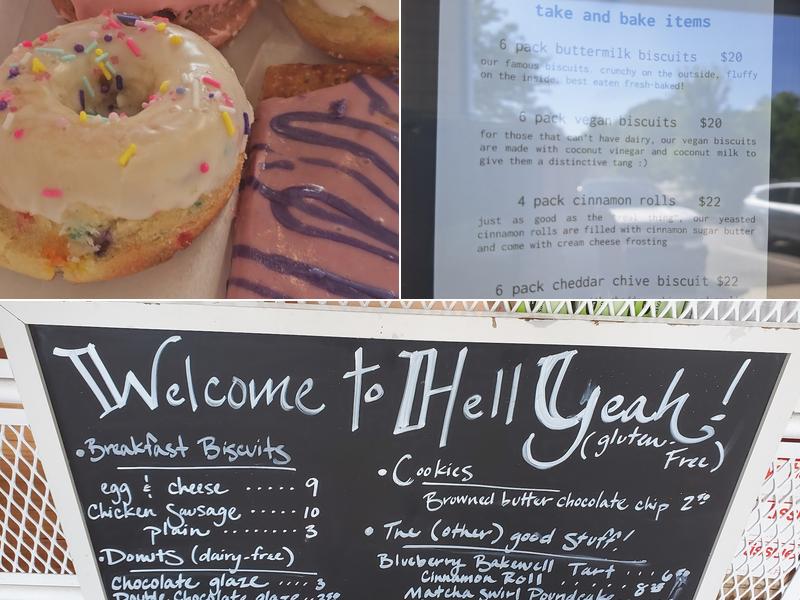 take and bake items
6 pack buttermilk biscuits $20
our famous biscuits. crunchy on the outside, fluffy
on the inside, best eaten fresh-baked!
6 pack vegan biscuits $20
for those that can't have dairy, our vegan biscuits
are made with coconut vinegar and coconut milk to
give them a distinctive tang :)
4 pack cinnamon rolls $22
just as good as the "real thing", our yeasted
cinnamon rolls are filled with cinnamon sugar butter
and come with cream cheese frosting
6 pack cheddar chive biscuit $22
Welcome to Hell Yeah!
(gluten-
Free)
• Breakfast Biscuits
egg & cheese ..... 9
Chicken Sausage ..... 10
plain ....... 3
• Donuts (dairy-free)
Chocolate glaze .... 3
Double Chocolate glaze
• Cookies
Browned butter chocolate chip 2⁵⁰
• The (other) good stuff!
Blueberry Bakewell Tart ... 6⁵⁰
Cinnamon Roll
Matcha Swirl Poundcake